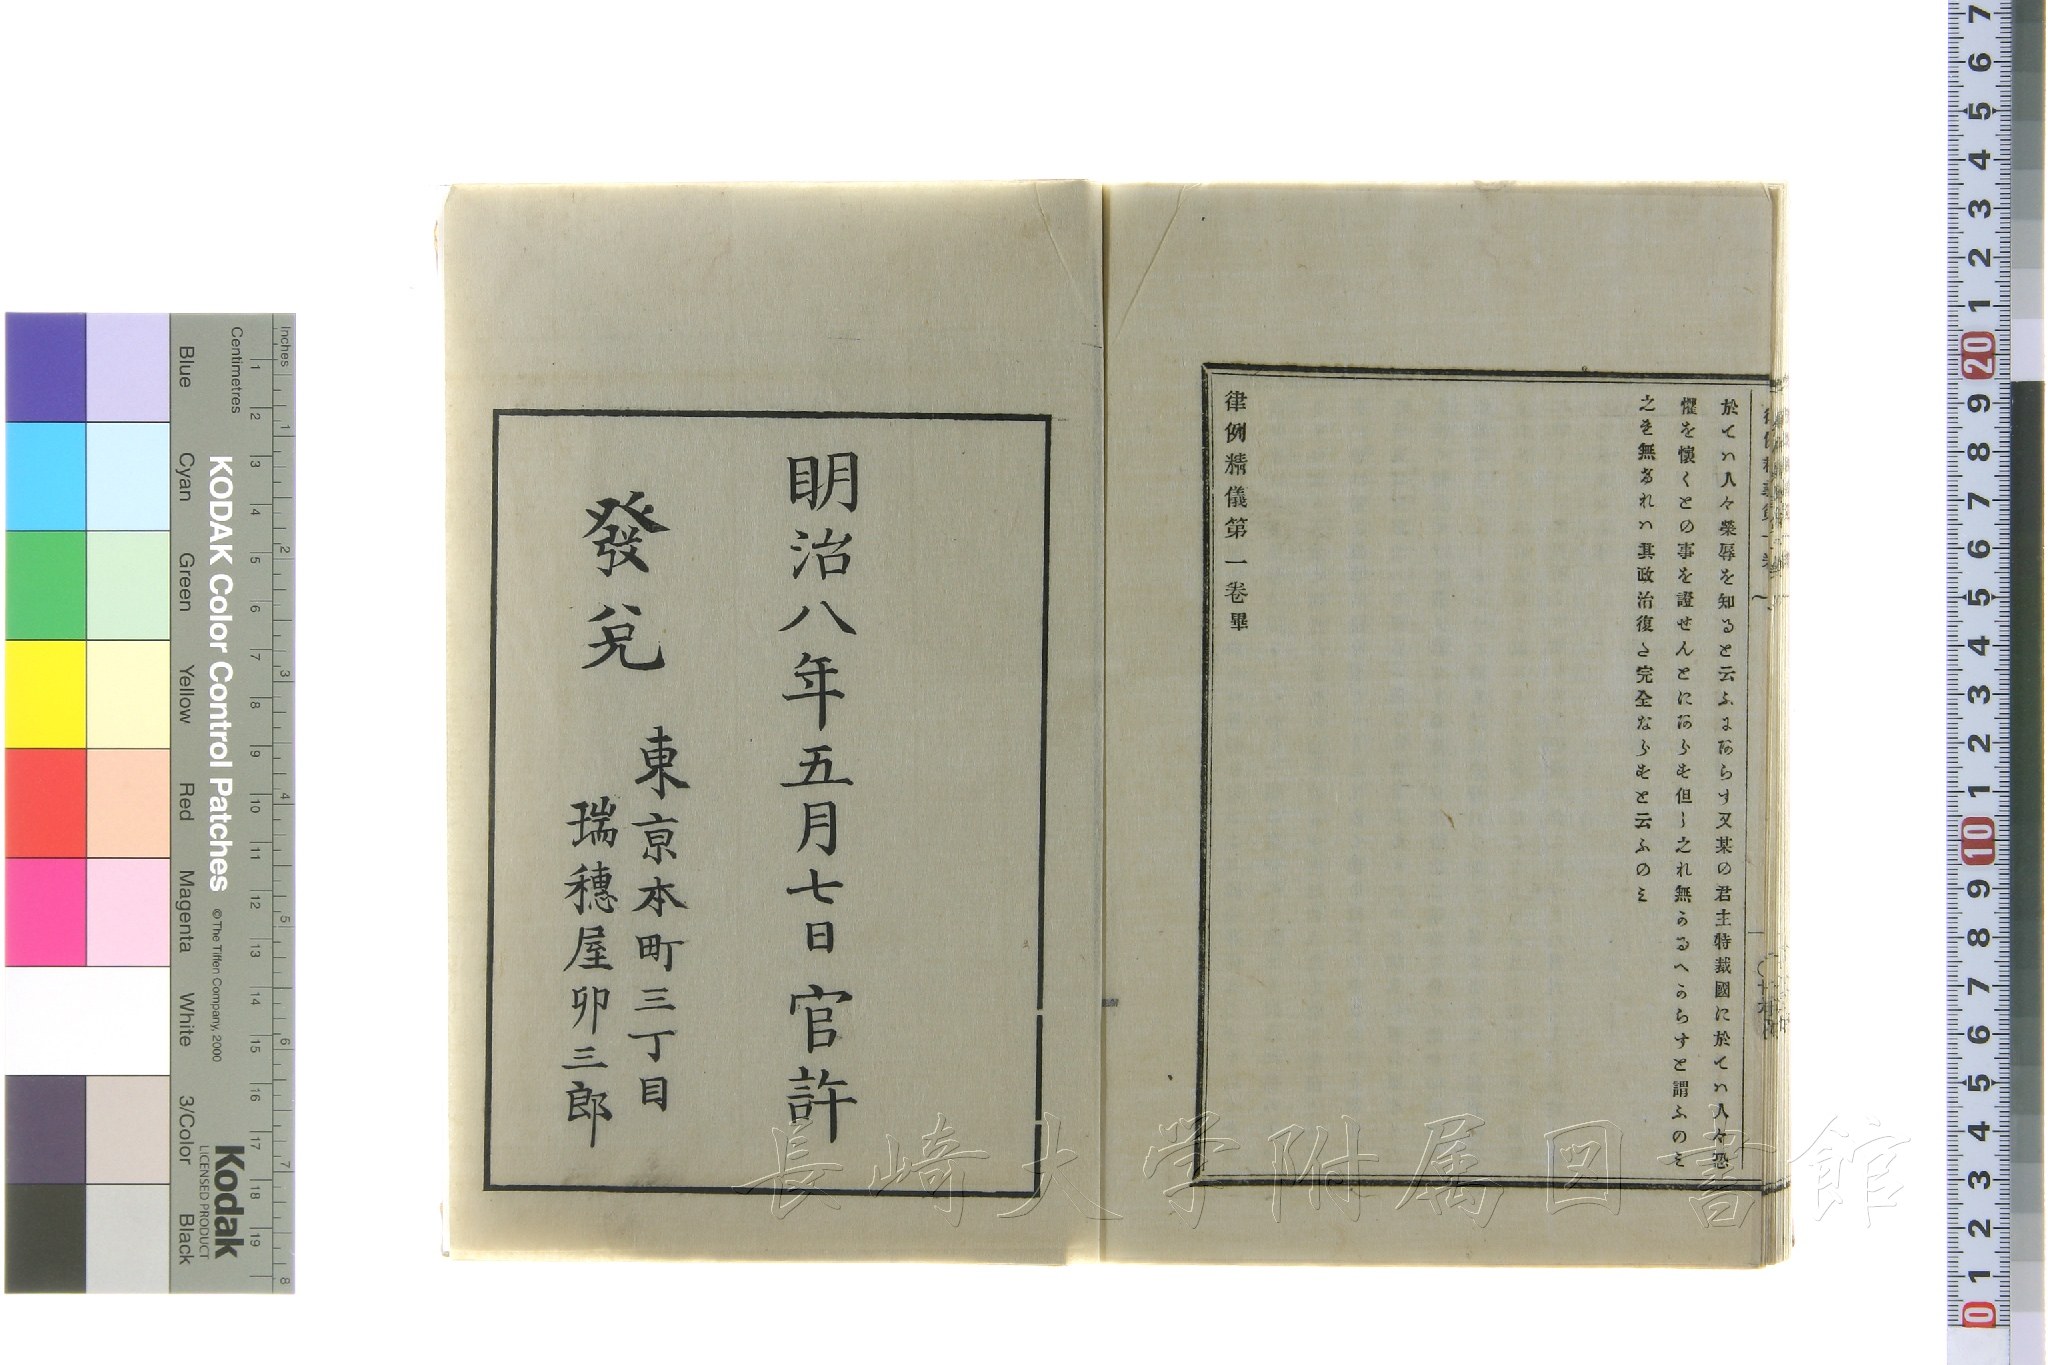 於てハ人々榮辱を知ると云ふにあらす又某の君主特裁國に於てハ人々恐
懼を懐くとの事を證せんとにあらす但し之れ無かるへからすと謂ふのミ
之を無けれハ其政治復た完全ならすと云ふのミ
律例精儀第一卷畢
明治八年五月七日官許
發兌
東京本町三丁目
瑞穗屋卯三郎
長崎大学附属図書館
KODAK Color Control Patches
© The Tiffen Company, 2000
Kodak
LICENSED PRODUCT
Inches
Centimetres
Blue
Cyan
Green
Yellow
Red
Magenta
White
3/Color
Black
1 2 3 4 5 6 7 8 9 10 11 12 13 14 15 16 17 18 19
1 2 3 4 5 6 7 8
0 1 2 3 4 5 6 7 8 9 10 1 2 3 4 5 6 7 8 9 20 1 2 3 4 5 6 7